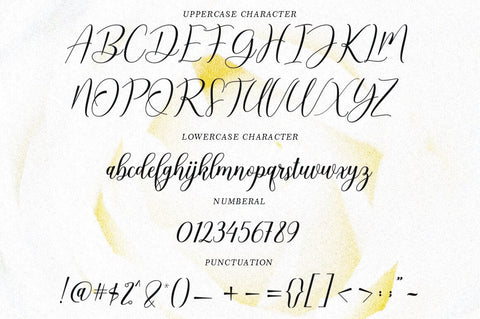 UPPERCASE CHARACTER
ABCDEFGHIJKLM
NOPQRSTUVWXYZ
LOWERCASE CHARACTER
abcdefghijklmnopqrstuvwxyz
NUMBERAL
0123456789
PUNCTUATION
!@#$%^&*()_+-={}[]<>:;"~